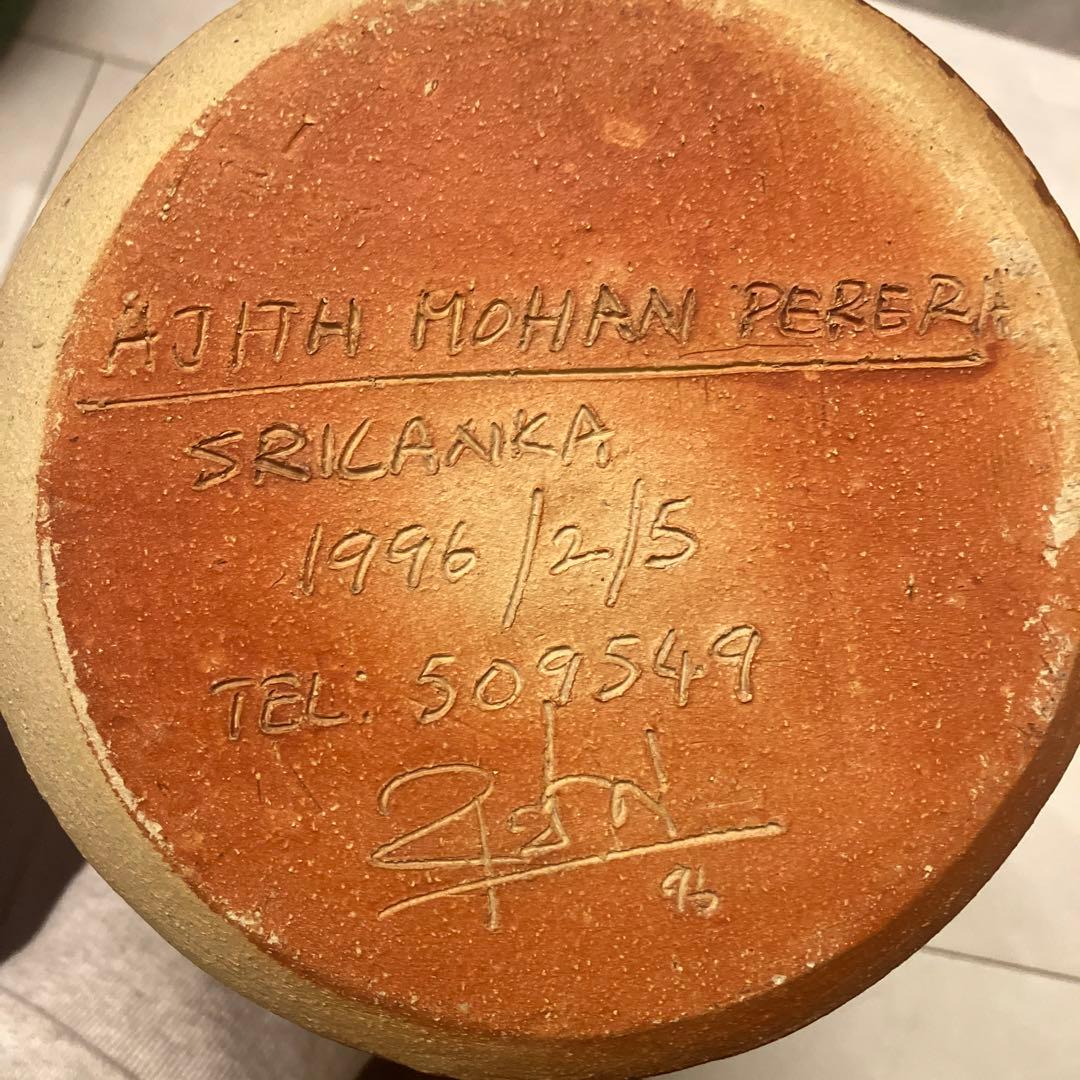 AJITH MOHAN PERERA
SRILANKA
1996/2/5
TEL: 509549
96